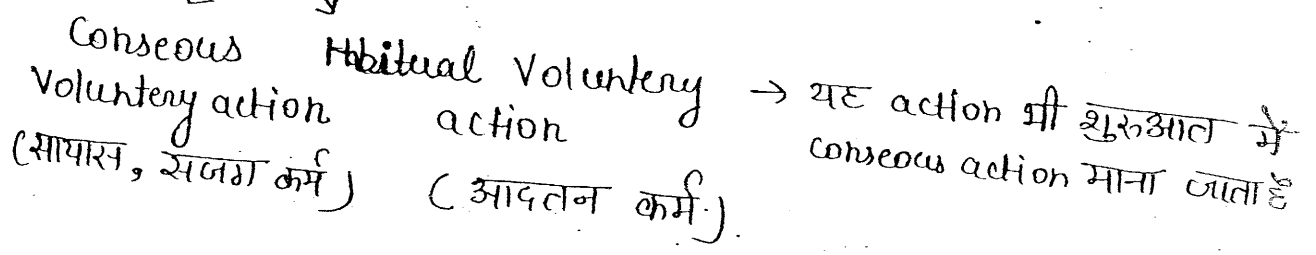 Conseous Voluntery action (सायास, सजग कर्म)
Habitual Voluntery action (आदतन कर्म)
→ यह action भी शुरुआत में
conseous action माना जाता है